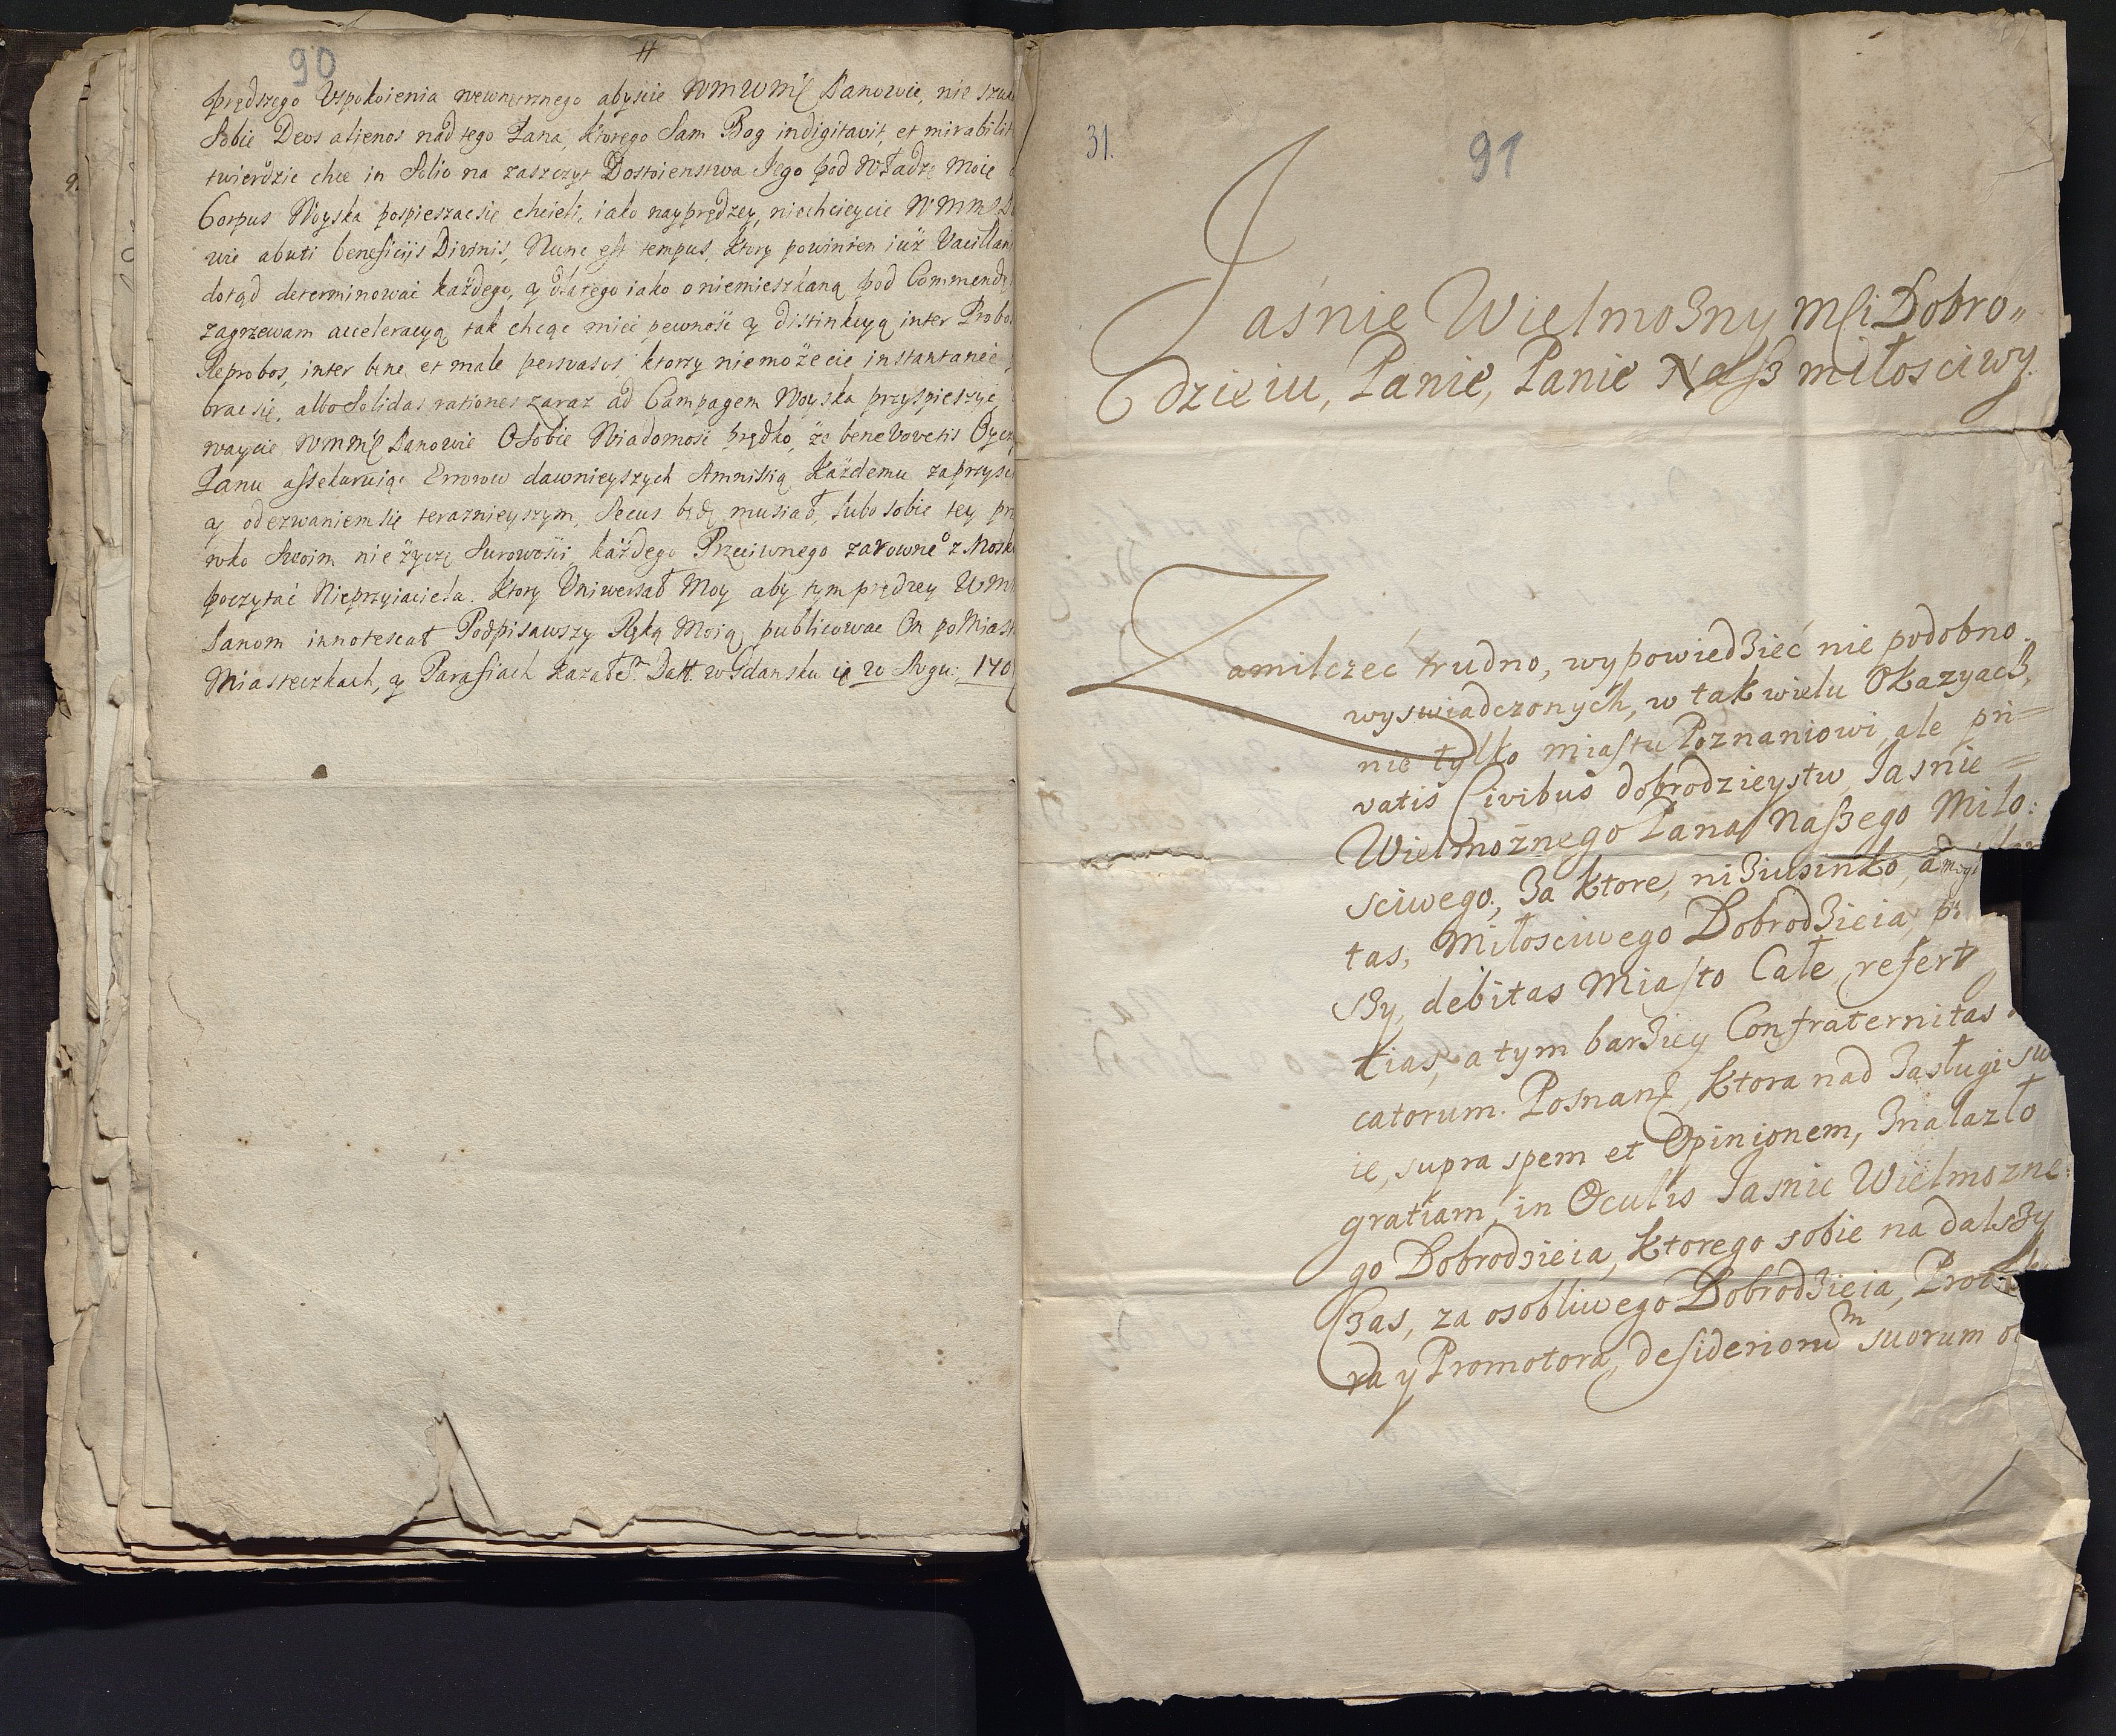 90
#
prędszego Uspokoienia wewnętrznego abyscie WMWMć Panowie, nie szu
Sobie Deos alienos nad tego Pana, ktorego Sam Bog indigitavit, et mirabilit
twierdzic chce in Solio na zaszczyt Dostoienstwa Jego pod Władzę Moię
Corpus Woyska pospieszacsie chcieli, iako nayprędzey, niechcieycie WMM
wie abuti beneficijs Divinis, Nunc est tempus, ktory powinien iuż Vacillan
dotąd determinować każdego, y dlatego iako o niemieszkaną pod Commendę
zagrzewam acceleracyą tak chcąc mieć pewność y distinkcyą inter Probo
Reprobos, inter bene et male persvasos ktorzy niemożecie instantanee
brac się, albo Solidas rationes zaraz ad Campagem Woyska przyspieszyć
waycie WMMć Panowie O Sobie Wiadomość prędko, że bene vovetis Oycz
Panu assekuruiąc Errorow dawnieyszych Amnistią Każdemu zaprzys
y odezwaniem się teraznieyszym, Secus będę musiał, lubo sobie tey prz
wko Swoim nie życzę Surowości każdego Przeciwnego zarowno z Mosk
poczytać Nieprzyiaciela. Ktory Uniwersał Moy aby tym prędzey WM
Panom innotescat Podpisawszy Ręką Moią publicowac On po Miast
Miasteczkach, y Parafiach kazałē. Datt w Gdansku 20 Augu: 170
31.
91
Jaśnie Wielmożny Mći Dobro„
dzieiu, Panie, Panie Nasz miłosciwy.
Zamilczeć trudno, wypowiedzieć nie podobno
wyswiadczonych, w tak wielu Okazyach,
nie tylko miastu Poznaniowi, ale pri=
vatis Civibus dobrodzieystw, Jasnie=
Wielmożnego Pana Naszego Miło:
sciwego, za ktore, niziusinko, ad
tas, Miłosciwego Dobrodzieia,
szy, debitas Miasto Całe, refert
tias, a tym barziey Confraternitas
catorum. Posnań, ktora nad zasługi sw
ie, supra spem et Opinionem, znalazło
gratiam, in Oculis Jasnie Wielmozne:
go Dobrodzieia, ktorego sobie na dalszy
Czas, za osobliwego Dobrodzieia, Prote
ra y Promotora, desideriorum suorum